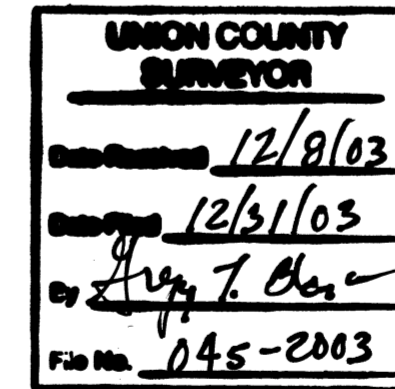 UNION COUNTY
SURVEYOR
Date Received 12/8/03
Date Filed 12/31/03
By
File No. 045-2003